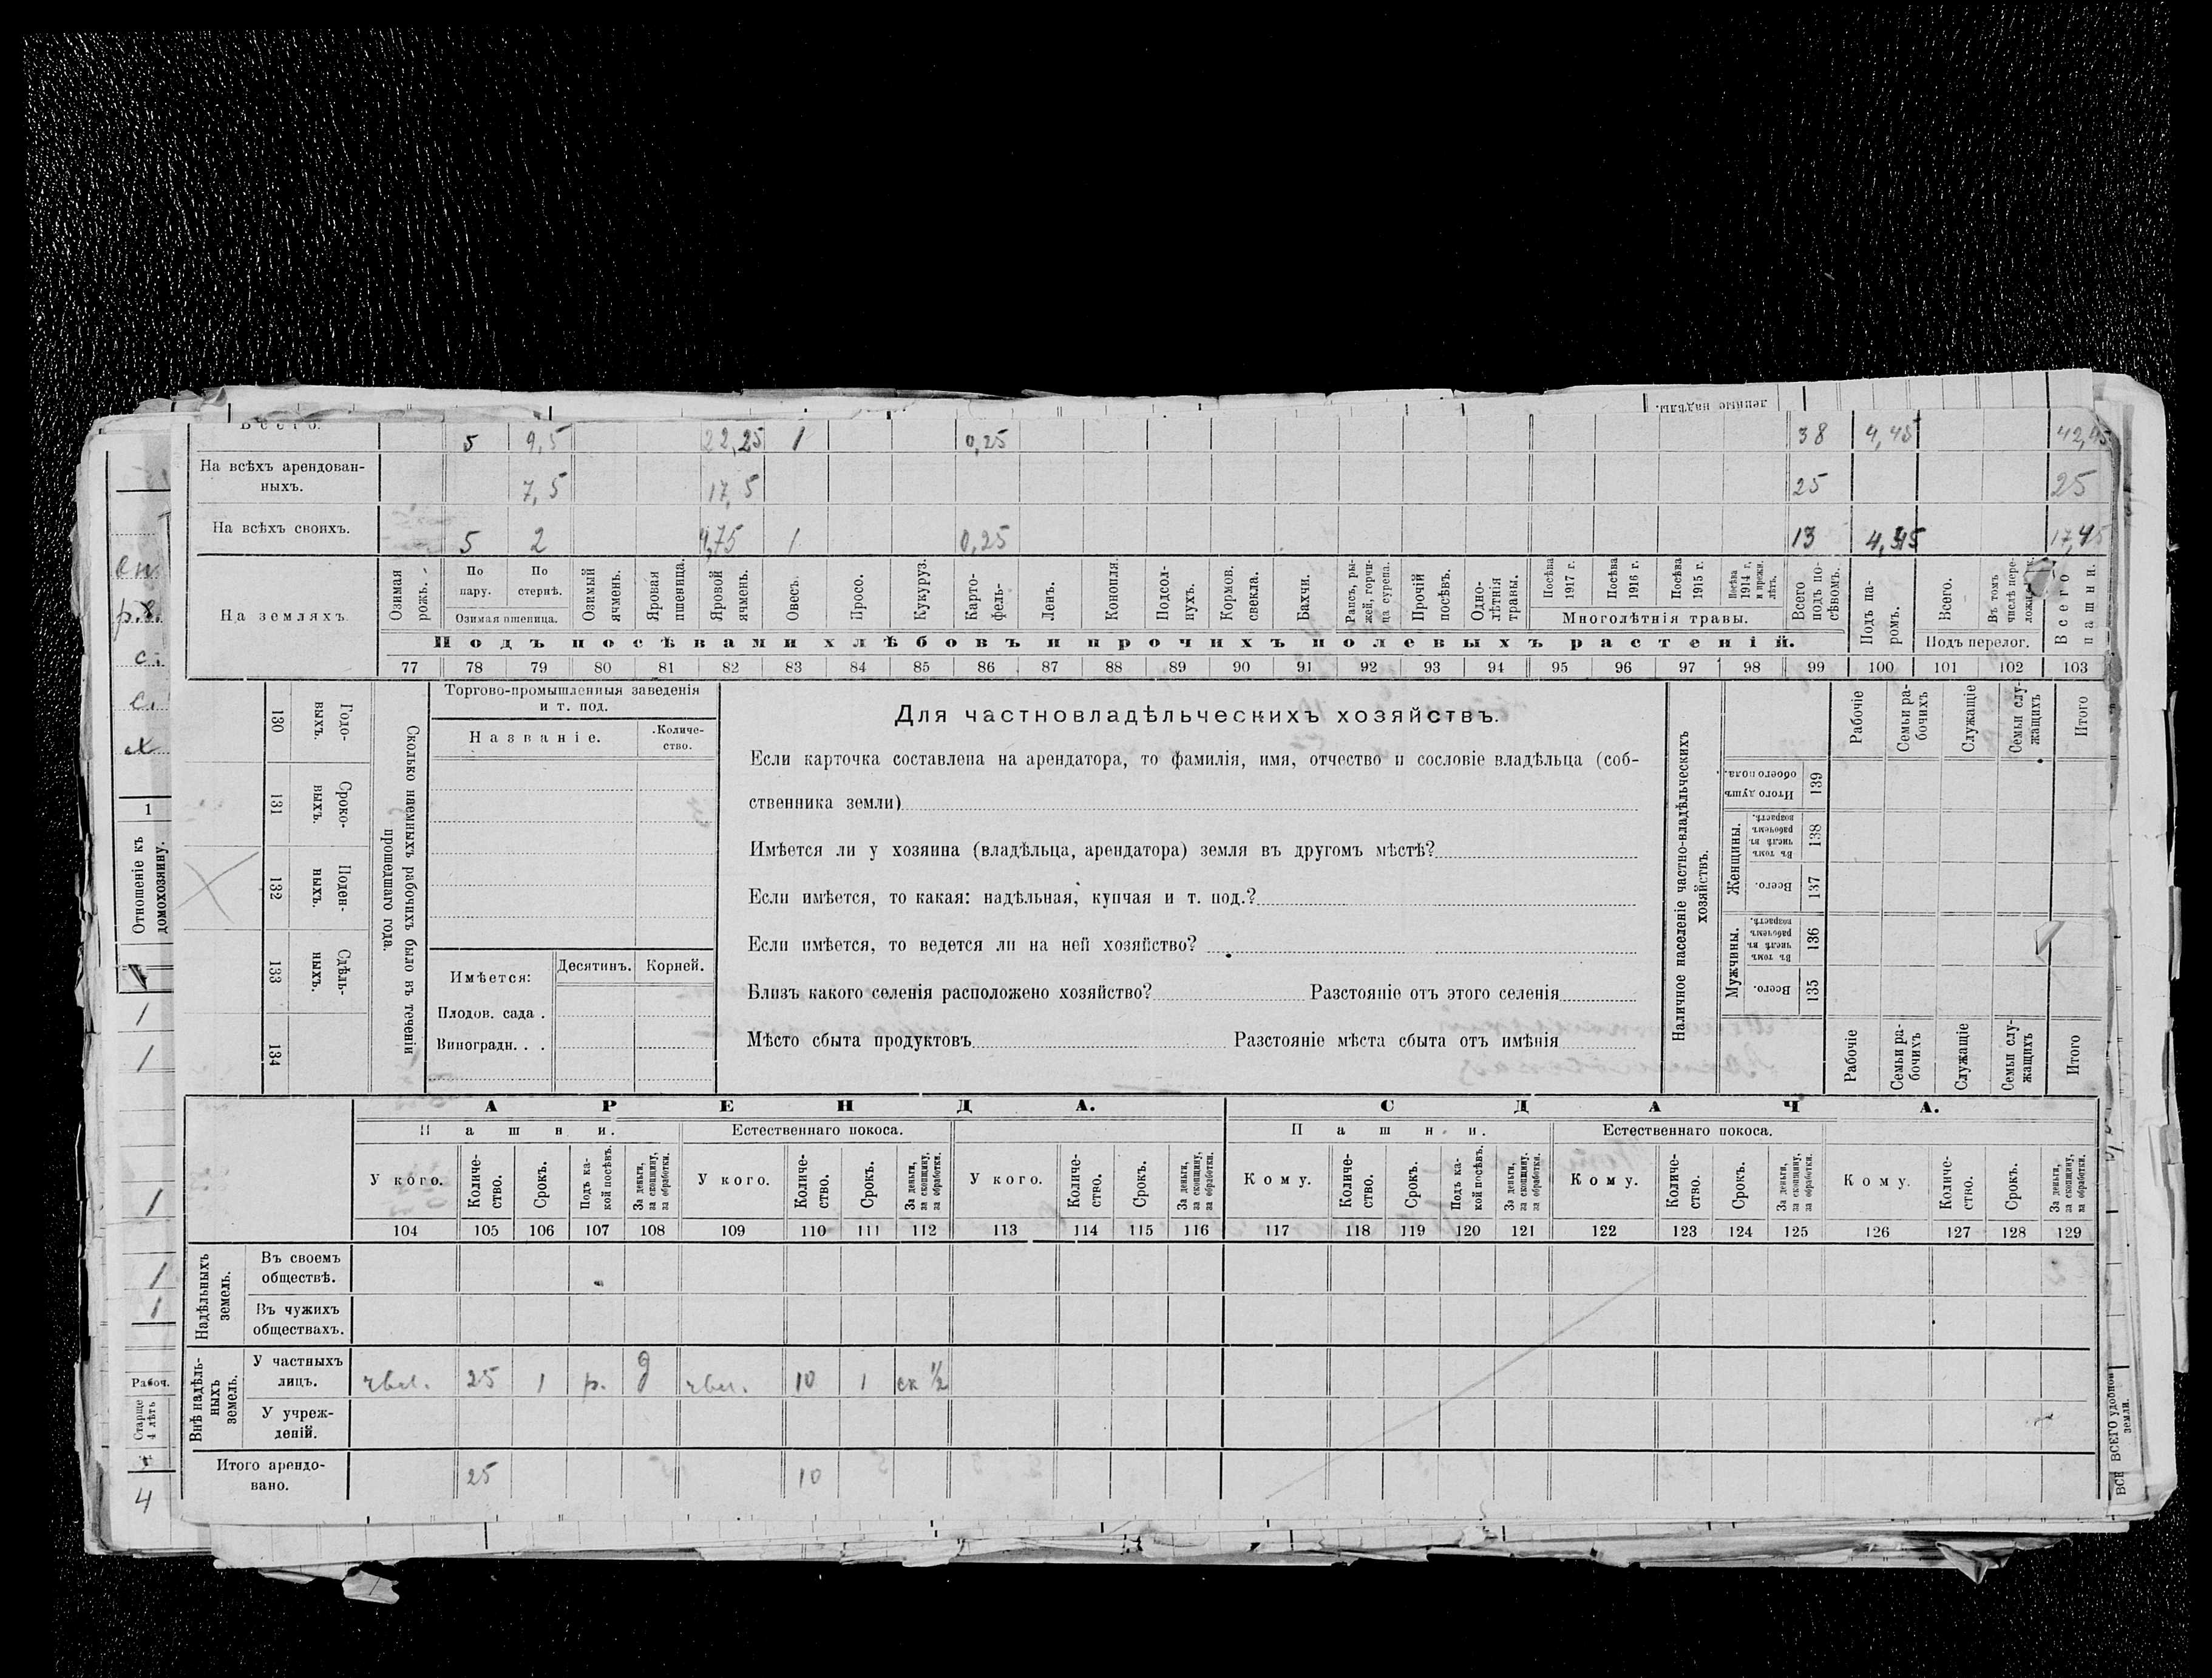 Всего. 5 9,5 22,25 1 0,25 38 4,45 42,45
На всѣхъ арендован-
ныхъ. 7,5 17,5 25 25
На всѣхъ своихъ. 5 2 4,75 1 0,25 13 4,45 17,45
На земляхъ
Озимая рожь.
По пару.
По стернѣ.
Озимая пшеница.
Озимый ячмень.
Яровая пшеница.
Яровой ячмень.
Овесъ.
Просо.
Кукуруз.
Карто-
фель.
Ленъ.
Конопля.
Подсол-
нухъ.
Кормов.
свекла.
Бахчи.
Рапсъ, ры-
жей, горчи-
ца сурепа.
Прочій
посѣвъ.
Одно-
лѣтнія
травы.
Посѣва
1917 г.
Посѣва
1916 г.
Посѣва
1915 г.
Посѣва
1914 г.
и прежн.
лѣтъ.
Многолѣтнія травы.
Всего
подъ по-
сѣвомъ.
Подъ па-
ромъ.
Всего.
Въ томъ
числѣ пере-
Подъ перелог.
Всего
пашни.
Подъ посѣвами хлѣбовъ и прочихъ полевыхъ растеній.
77 78 79 80 81 82 83 84 85 86 87 88 89 90 91 92 93 94 95 96 97 98 99 100 101 102 103
130 Годо-
выхъ.
131 Сроко-
выхъ.
132 Поден-
ныхъ.
133 Сдѣль-
ныхъ.
134
Сколько наемныхъ рабочихъ было въ теченіи
прошедшаго года.
Торгово-промышленныя заведенія
и т. под.
Названіе.
Количе-
ство.
Имѣется:
Десятинъ.
Корней.
Плодов. сада .
Виноградн. . .
Для частновладѣльческихъ хозяйствъ.
Если карточка составлена на арендатора, то фамилія, имя, отчество и сословіе владѣльца (соб-
ственника земли)
Имѣется ли у хозяина (владѣльца, арендатора) земля въ другомъ мѣстѣ?
Если имѣется, то какая: надѣльная, купчая и т. под.?
Если имѣется, то ведется ли на ней хозяйство?
Близъ какого селенія расположено хозяйство? Разстояніе отъ этого селенія
Мѣсто сбыта продуктовъ Разстояніе мѣста сбыта отъ имѣнія
Наличное населеніе частно-владѣльческихъ
хозяйствъ.
Рабочіе
Семьи ра-
бочихъ
Служащіе
Семьи слу-
жащихъ
Итого
Итого душъ
обоего пола.
139
Женщины.
Въ томъ
числѣ въ
рабочемъ
возрастѣ.
138
Всего.
137
Мужчины.
Въ томъ
числѣ въ
рабочемъ
возрастѣ.
136
Всего.
135
Рабочіе
Семьи ра-
бочихъ
Служащіе
Семьи слу-
жащихъ
Итого
АРЕНДА. СДАЧА.
Пашни. Естественнаго покоса. Пашни. Естественнаго покоса.
У кого.
Количе-
ство.
Срокъ.
Подъ ка-
кой посѣвъ.
За деньги,
за скопщину,
за обработки.
У кого.
Количе-
ство.
Срокъ.
За деньги,
за скопщину,
за обработки.
У кого.
Количе-
ство.
Срокъ.
За деньги,
за скопщину,
за обработки.
Кому.
Количе-
ство.
Срокъ.
Подъ ка-
кой посѣвъ.
За деньги,
за скопщину,
за обработки.
Кому.
Количе-
ство.
Срокъ.
За деньги,
за скопщину,
за обработки.
Кому.
Количе-
ство.
Срокъ.
За деньги,
за скопщину,
за обработки.
104 105 106 107 108 109 110 111 112 113 114 115 116 117 118 119 120 121 122 123 124 125 126 127 128 129
Надѣльныхъ
земель.
Въ своемъ
обществѣ.
Въ чужихъ
обществахъ.
Внѣ надѣль-
ныхъ
земель.
У частныхъ
лицъ. 25 1 р. д 10 1 ск ½
У учреж-
деній.
Итого арендо-
вано. 25 10
1
Отношеніе къ
домохозяину.
1
1
1
1
1
Рабоч.
Старше
4 лѣтъ
4
ВСЕГО удобной
земли.